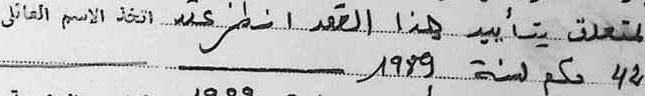 لمتعلق بتأبيد هذا العقد انظر عقد اتخذ الاسم العائلي
42 حكم لسنة 1989